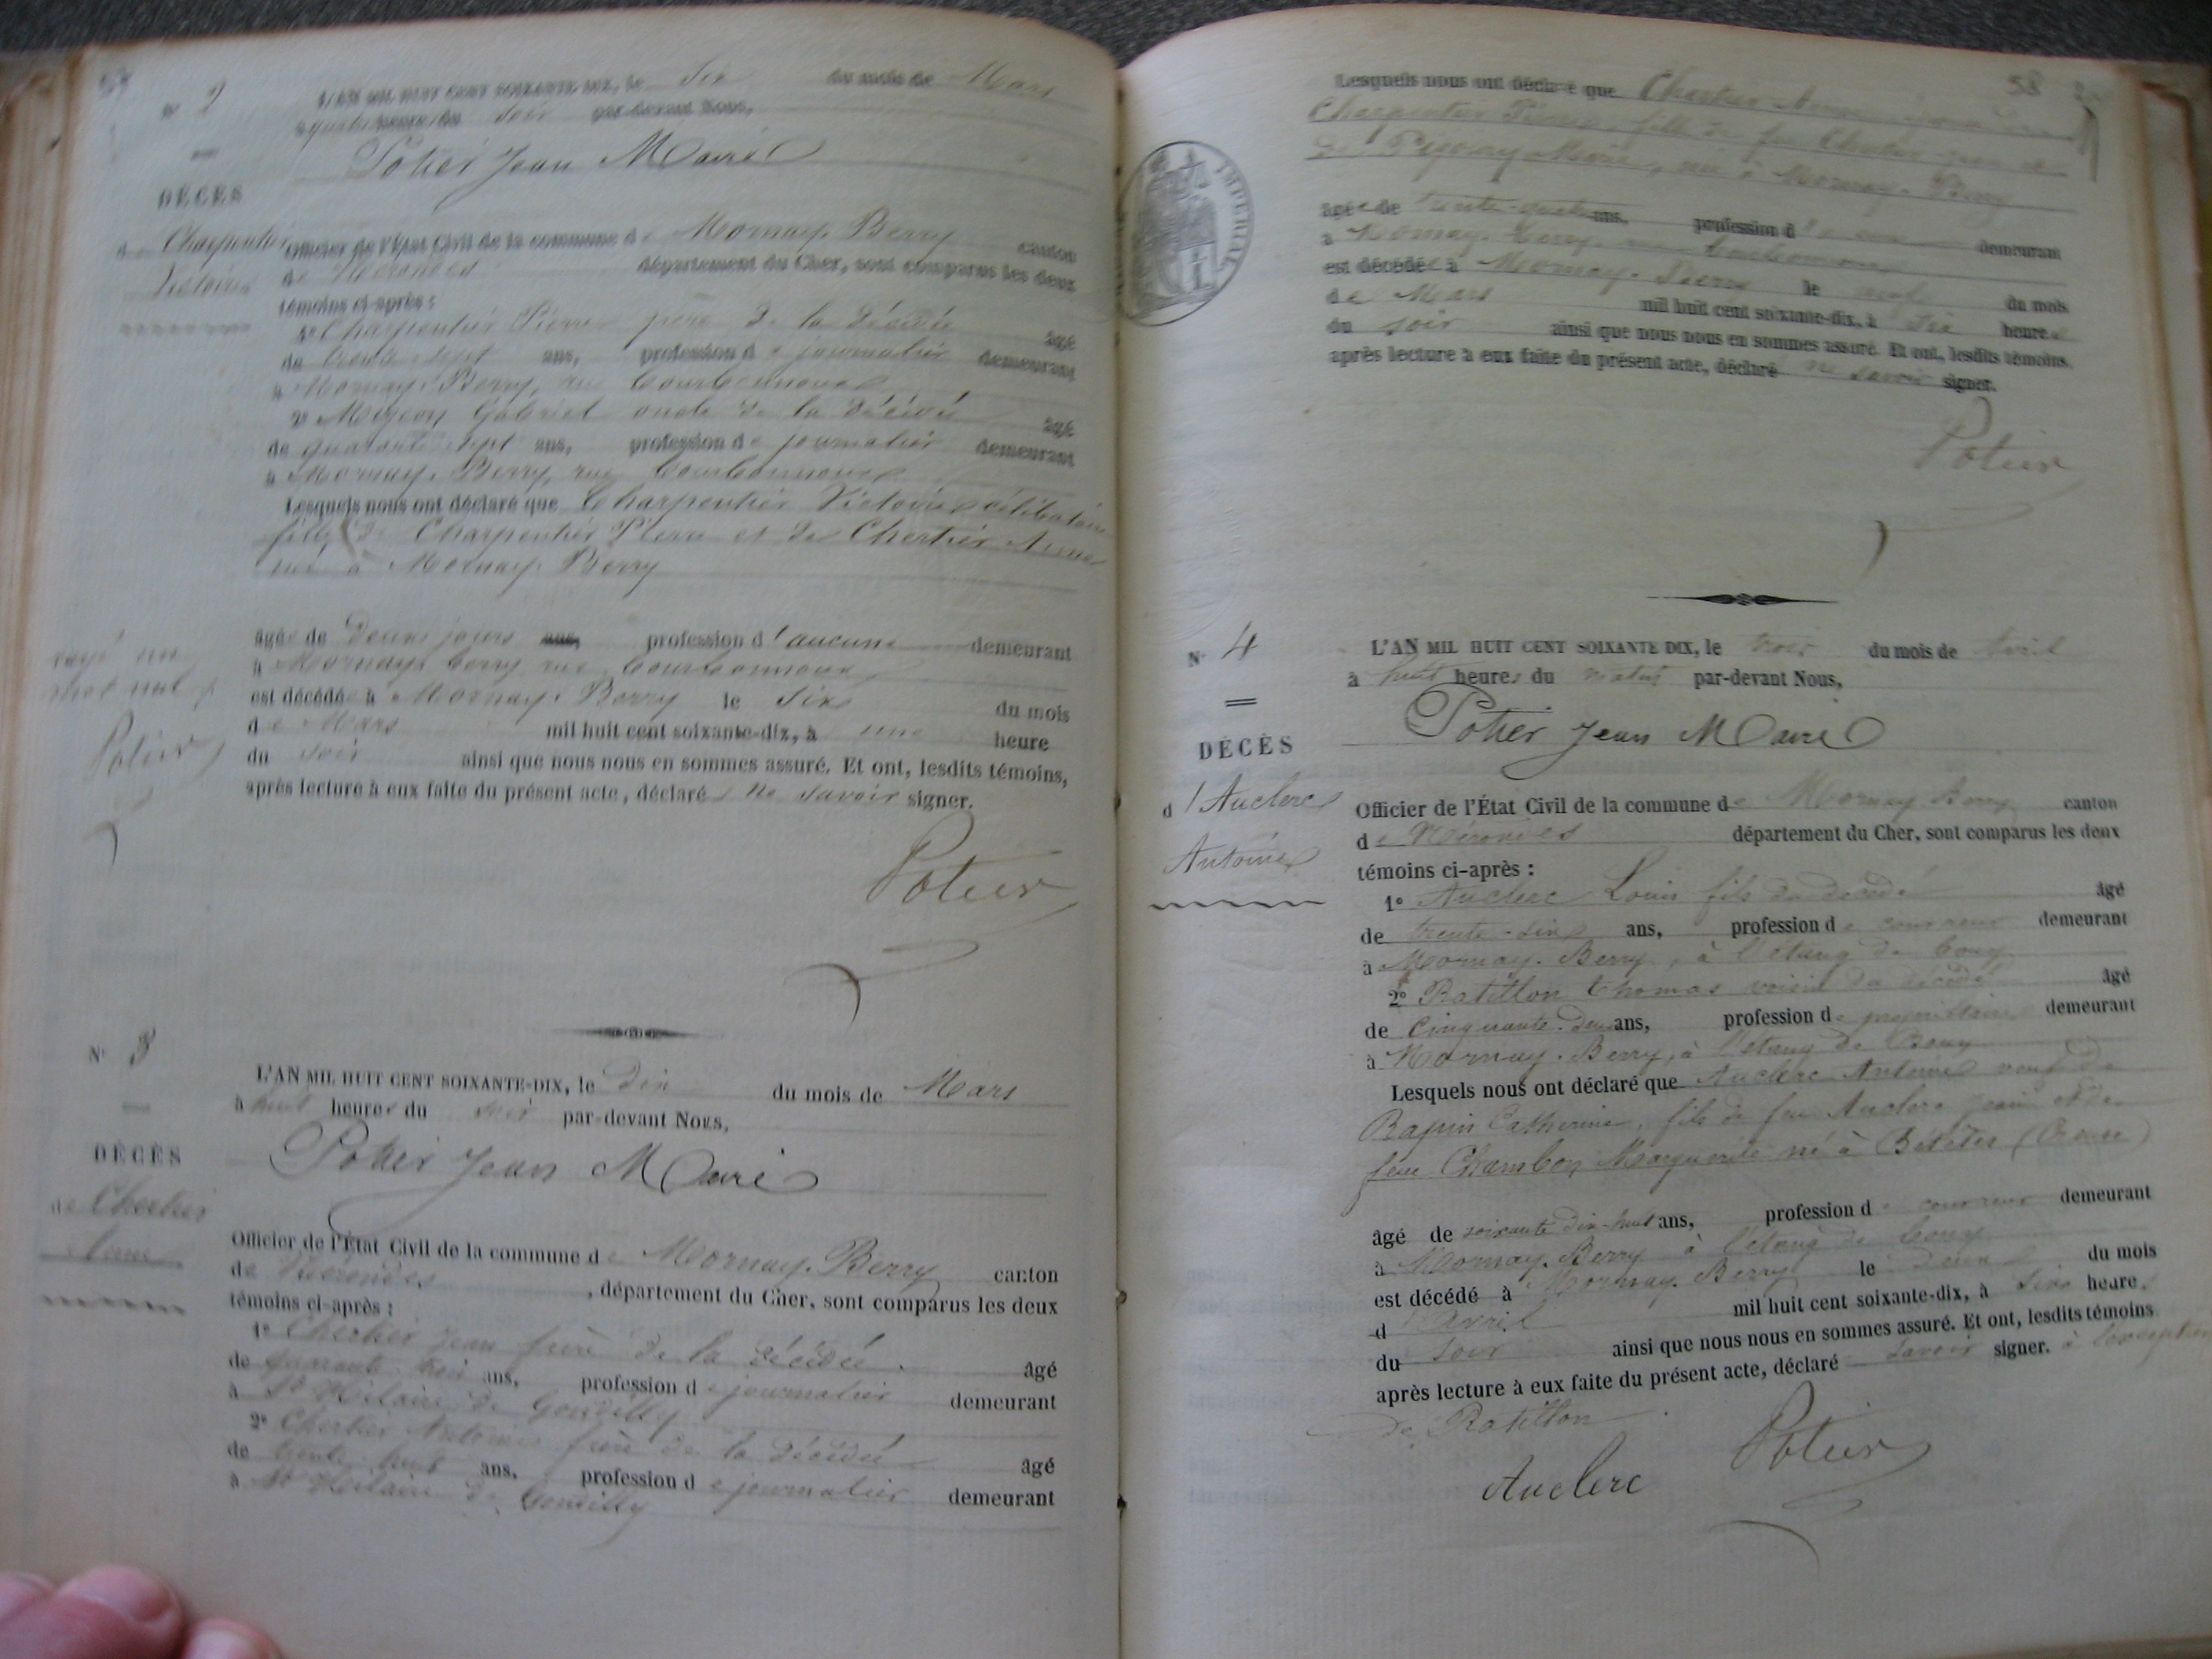 N° 2
L'AN MIL HUIT CENT SOIXANTE-DIX, le Six du mois de Mars
à quatre heures du soir par-devant Nous,
Potier Jean Maire
DÉCÈS
de Charpentier
Victoire
Officier de l'État Civil de la commune de Mornay-Berry canton
de Nérondes département du Cher, sont comparus les deux
témoins ci-après :
1° Charpentier Pierre père de la décédée âgé
de trente sept ans, profession de journalier demeurant
à Mornay-Berry, rue
2° Gabriel oncle de la décédée âgé
de quarante sept ans, profession de journalier demeurant
à Mornay-Berry, rue
Lesquels nous ont déclaré que Charpentier Victoire célibataire
fille de Charpentier Pierre et de Chertier Anne
née à Mornay-Berry
âgée de Deux jours ans, profession d'aucune demeurant
à Mornay-Berry rue
est décédée à Mornay-Berry le Six du mois
de Mars mil huit cent soixante-dix, à une heure
du soir ainsi que nous nous en sommes assuré. Et ont, lesdits témoins,
après lecture à eux faite du présent acte, déclaré ne savoir signer.
rayé un
mot nul
Potier
Potier
N° 3
L'AN MIL HUIT CENT SOIXANTE-DIX, le Dix du mois de Mars
à huit heures du soir par-devant Nous,
Potier Jean Maire
DÉCÈS
de Chertier
Anne
Officier de l'État Civil de la commune de Mornay-Berry canton
de Nérondes, département du Cher, sont comparus les deux
témoins ci-après :
1° Chertier Jean frère de la décédée. âgé
de quarante trois ans, profession de journalier demeurant
à St Hilaire de Gondilly
2° Chertier Antoine frère de la décédée âgé
de trente huit ans, profession de journalier demeurant
à St Hilaire de Gondilly
58
Lesquels nous ont déclaré que Chertier Anne
Charpentier Pierre, fille de feu Chertier
de Marie, née à Mornay-Berry
âgée de trente-quatre ans, profession d demeurant
à Mornay-Berry rue
est décédée à Mornay-Berry le neuf du mois
de Mars mil huit cent soixante-dix, à six heures
du soir ainsi que nous nous en sommes assuré. Et ont, lesdits témoins,
après lecture à eux faite du présent acte, déclaré ne savoir signer.
IMPERIAL
Potier
N° 4
L'AN MIL HUIT CENT SOIXANTE DIX, le trois du mois de Avril
à huit heures du matin par-devant Nous,
Potier Jean Maire
DÉCÈS
d'Auclerc
Antoine
Officier de l'État Civil de la commune de Mornay-Berry canton
de Nérondes département du Cher, sont comparus les deux
témoins ci-après :
1° Auclerc Louis fils du décédé âgé
de trente-six ans, profession de couvreur demeurant
à Mornay-Berry, à l'étang de Bouy
2° Ratillon Thomas voisin du décédé âgé
de Cinquante-deux ans, profession de propriétaire demeurant
à Mornay-Berry, à l'étang de Bouy
Lesquels nous ont déclaré que Auclerc Antoine veuf de
Rapin Catherine, fils de feu Auclerc Jean et de
feue Chambon Marguerite né à Bétête (Creuse)
âgé de soixante dix-huit ans, profession de couvreur demeurant
à Mornay-Berry à l'étang de Bouy
est décédé à Mornay-Berry le deux du mois
d'Avril mil huit cent soixante-dix, à six heures
du soir ainsi que nous nous en sommes assuré. Et ont, lesdits témoins
après lecture à eux faite du présent acte, déclaré savoir signer. à l'exception
de Ratillon
Auclerc Potier